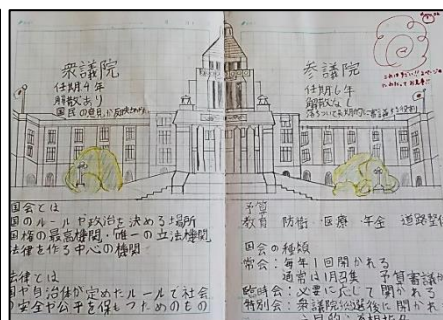 衆議院
任期4年
解散あり
国民の意見が反映
参議院
任期6年
解散なし
国会とは
国のルールや政治を決める場所
国権の最高機関・唯一の立法機関
法律を作る中心の機関
法律とは
国や自治体が定めたルールで社会
の安全や公平を保つためのもの
予算
教育 防衛 医療 年金 道路整備
国会の種類
常会:毎年1回開かれる
通常は1月召集 予算審議が
臨時会:必要に応じて開かれる
特別会:衆議院 選後に開かれ